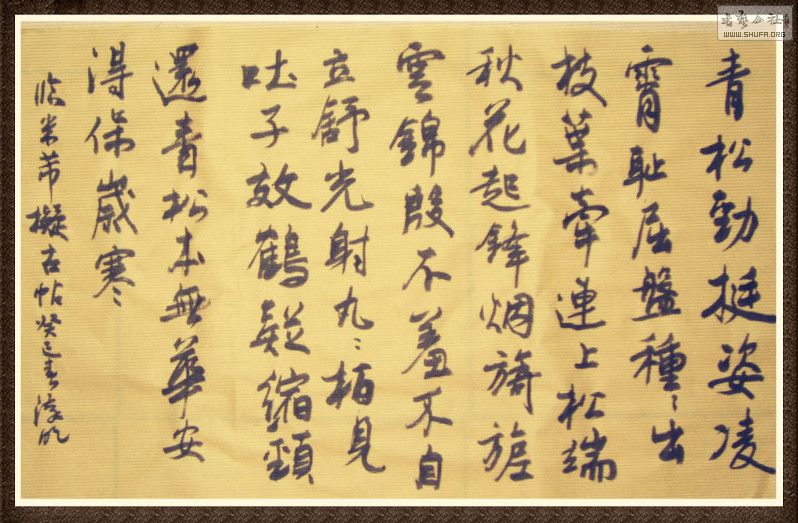 青松勁挺姿凌
霄耻屈盤種〻出
枝葉牽連上松端
秋花起鋒烟旖旎
雲錦殷不羞不自
立舒光射丸〻柏見
吐子效鶴疑縮頸
還青松本無華安
得保歲寒
临米芾擬古帖癸巳春
书艺公社
WWW.SHUFA.ORG